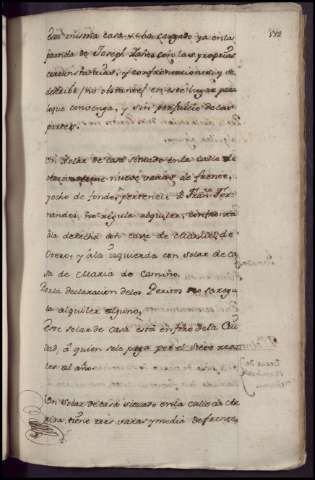 Esta misma casa se ha cargado ya en la
partida de Joseph Yañez con las propias
circunstancias, y confrontaciones; y se
describe (no obstante) en este lugar para
lo que convenga, y sin perjuicio de las
partes.
Un solar de casa situado en la calle de
que nueve varas de frente,
y ocho de fondo, pertenece a Fran.co Fer-
nandez, no regula alquiler, confronta
a la derecha con casa de de
Otero, y a la izquierda con solar de ca-
sa de Maria de Camiño.
Por la declaracion de los Peritos no se regu-
la alquiler alguno.
Este solar de casa está en foro de la Ciu-
dad, á quien se le paga por el siete rea-
les al año.
Un solar de casa situado en la calle de
tiene tres varas y media de frente,